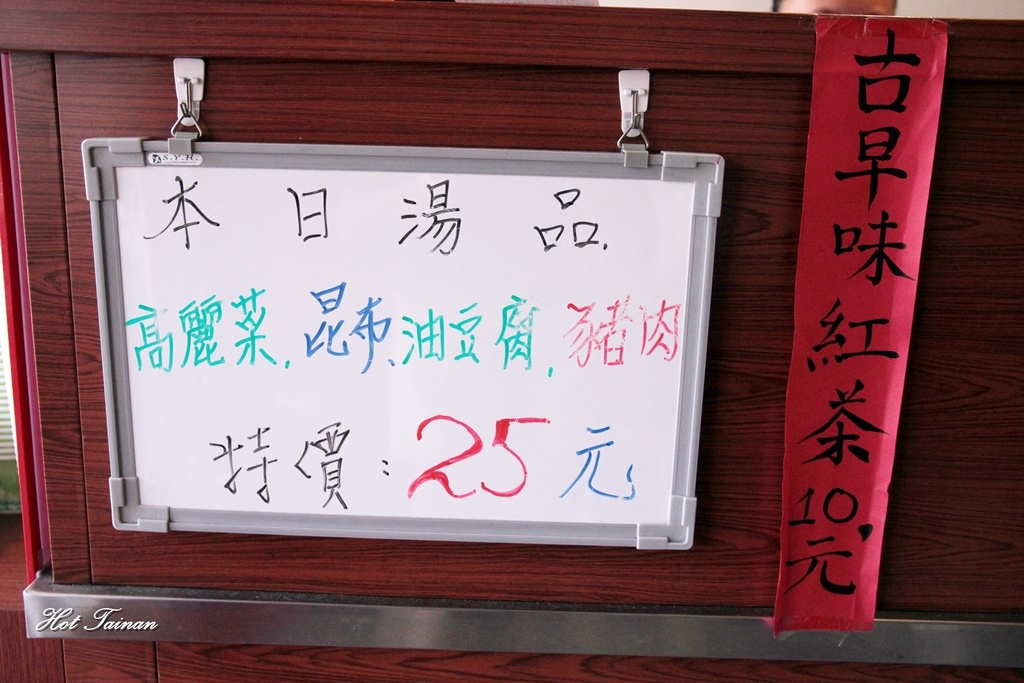 S.Y.H.
本日湯品.
高麗菜.昆布、油豆腐.豬肉
特價:25元
古早味紅茶10元
Hot Tainan